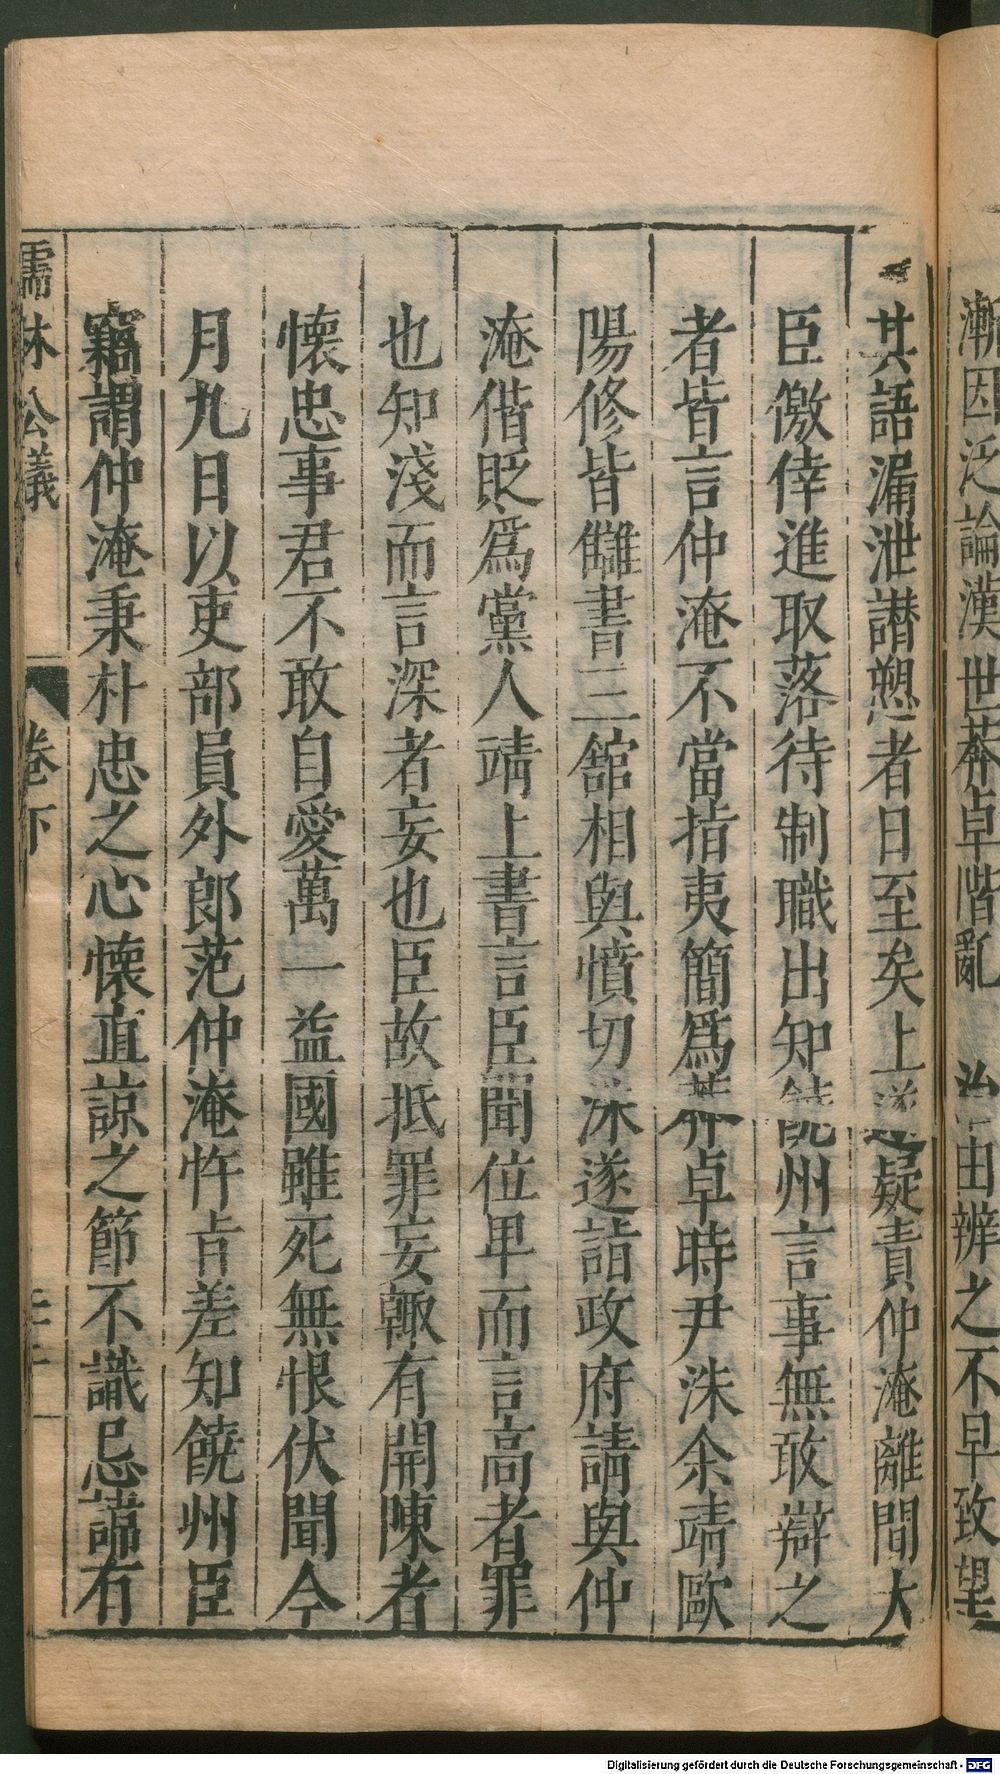 漸因泛論漢世莽卓階亂 治由辨之不早致望
其語漏泄譖愬者日至矣上遂疑責仲淹離間大
臣儌倖進取落待制職出知饒州言事無敢辯之
者皆言仲淹不當指夷簡爲莽卓時尹洙余靖歐
陽修皆讎書三舘相與憤切洙遂詣政府請與仲
淹偕貶爲黨人靖上書言臣聞位卑而言高者罪
也知淺而言深者妄也臣故抵罪妄輙有開陳者
懐忠事君不敢自愛萬一益國雖死無恨伏聞今
月九日以吏部員外郎范仲淹忤旨差知饒州臣
竊謂仲淹秉朴忠之心懐直諒之節不識忌諱有
儒林公議 卷下 二十一
Digitalisierung gefördert durch die Deutsche Forschungsgemeinschaft - DFG